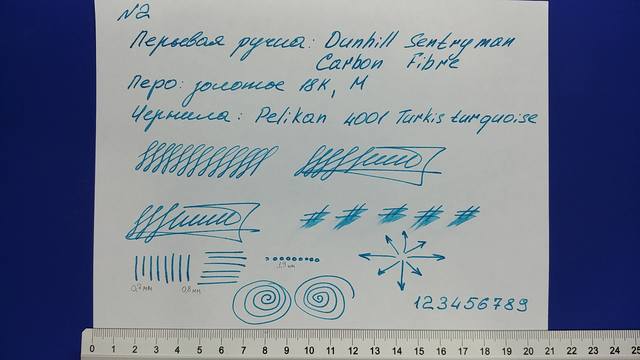 №2
Перьевая ручка: Dunhill Sentryman
Carbon Fibre
Перо: золотое 18К, М
Чернила: Pelikan 4001 Turkis turquoise
1,9 мм
0,7 мм 0,8 мм
123456789
0 1 2 3 4 5 6 7 8 9 10 11 12 13 14 15 16 17 18 19 20 21 22 23 24 25